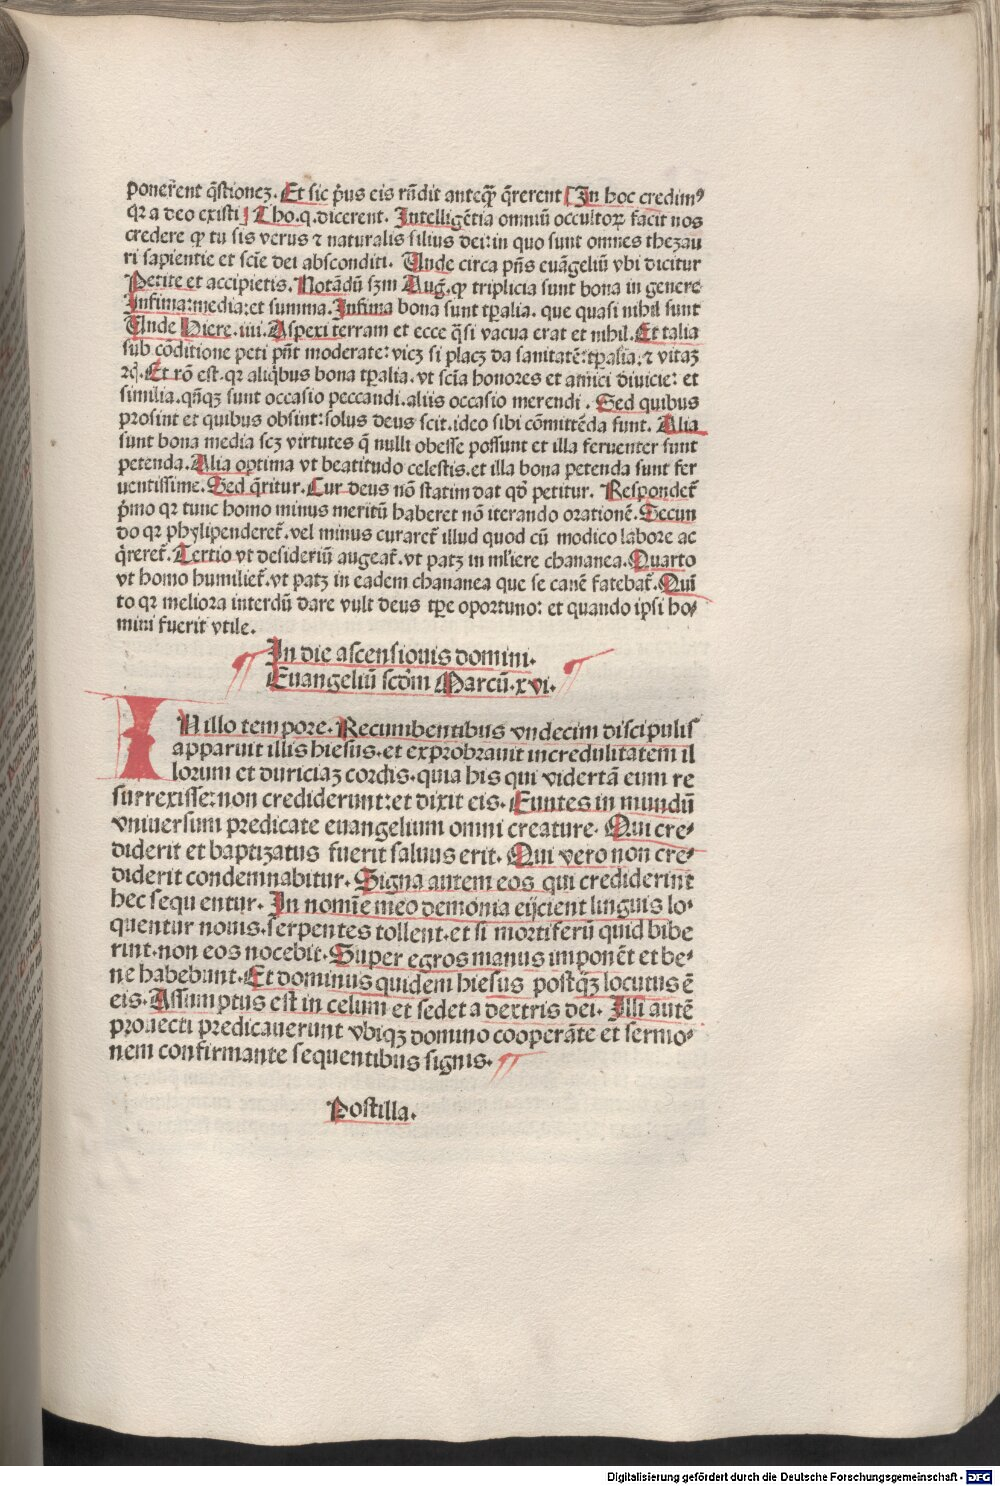 ponerent q̃stionez. Et sic p̃us eis rñdit anteq̃ꝫ q̃rerent [In hoc credimꝰ
qꝛ a deo existi] Tho.q.dicerent. Intelligẽtia omniũ occultoꝝ facit nos
credere ꝙ tu sis verus ⁊ naturalis filius dei: in quo sunt omnes thezau
ri sapientie et scĩe dei absconditi. Unde circa pñs euãgeliũ vbi dicitur
Petite et accipietis. Notãdũ ẜm Aug̃.ꝙ triplicia sunt bona in genere
Infima:media:et summa. Infima bona sunt tp̃alia. que quasi nihil sunt
Unde Hiere .iiii. Aspexi terram et ecce q̃si vacua erat et nihil. Et talia
sub cõditione peti pñt moderate: vicꝫ si placꝫ da sanitatẽ: tp̃alia. ⁊ vitaꝫ
⁊c̃. Et rõ est. qꝛ aliq̃bus bona tp̃alia. vt scĩa honores et amici diuicie: et
similia. qñqꝫ sunt occasio peccandi. aliis occasio merendi. Sed quibus
prosint et quibus obsint: solus deus scit. ideo sibi cõmittẽda sunt. Alia
sunt bona media scꝫ virtutes q̃ nulli obesse possunt et illa feruenter sunt
petenda. Alia optima vt beatitudo celestis. et illa bona petenda sunt fer
uentissime. Sed q̃ritur. Cur deus nõ statim dat qd̃ petitur. Respondet̃
p̃mo qꝛ tunc homo minus meritũ haberet nõ iterando orationẽ. Secun
do qꝛ phylipenderet̃. vel minus curaret̃ illud quod cũ modico labore ac
q̃reret̃. Tertio vt desideriũ augeat̃. vt patꝫ in ml̃iere chananea. Quarto
vt homo humiliet̃. vt patꝫ in eadem chananea que se canẽ fatebat̃. Quĩ
to qꝛ meliora interdũ dare vult deus tp̃e oportuno: et quando ipsi ho⸗
mini fuerit vtile.
In die ascensiouis domini.
Euangeliũ scd̃m Marcũ.xvi.
IN illo tempore. Recumbentibus vndecim discipulis
apparuit illis hiesus. et exprobrauit incredulitatem il
lorum et duriciaꝫ cordis. quia his qui vidertã eum re
surrexisse: non crediderunt: et dixit eis. Euntes in mundũ
vniuersum predicate euangelium omni creature. Qui cre⸗
diderit et baptizatus fuerit saluus erit. Qui vero non cre⸗
diderit condemnabitur. Signa autem eos qui crediderint
hec sequentur. In nomĩe meo demonia eijcient linguis lo⸗
quentur nouis. serpentes tollent. et si mortiferũ quid bibe
rint. non eos nocebit. Super egros manus imponẽt et be⸗
ne habebunt. Et dominus quidem hiesus postq̃ꝫ locutus ẽ
eis. Assumptus est in celum et sedet a dextris dei. Illi autẽ
profecti predicauerunt vbiqꝫ domino cooperãte et sermo⸗
nem confirmante sequentibus signis.
Postilla.
Digitalisierung gefördert durch die Deutsche Forschungsgemeinschaft - DFG